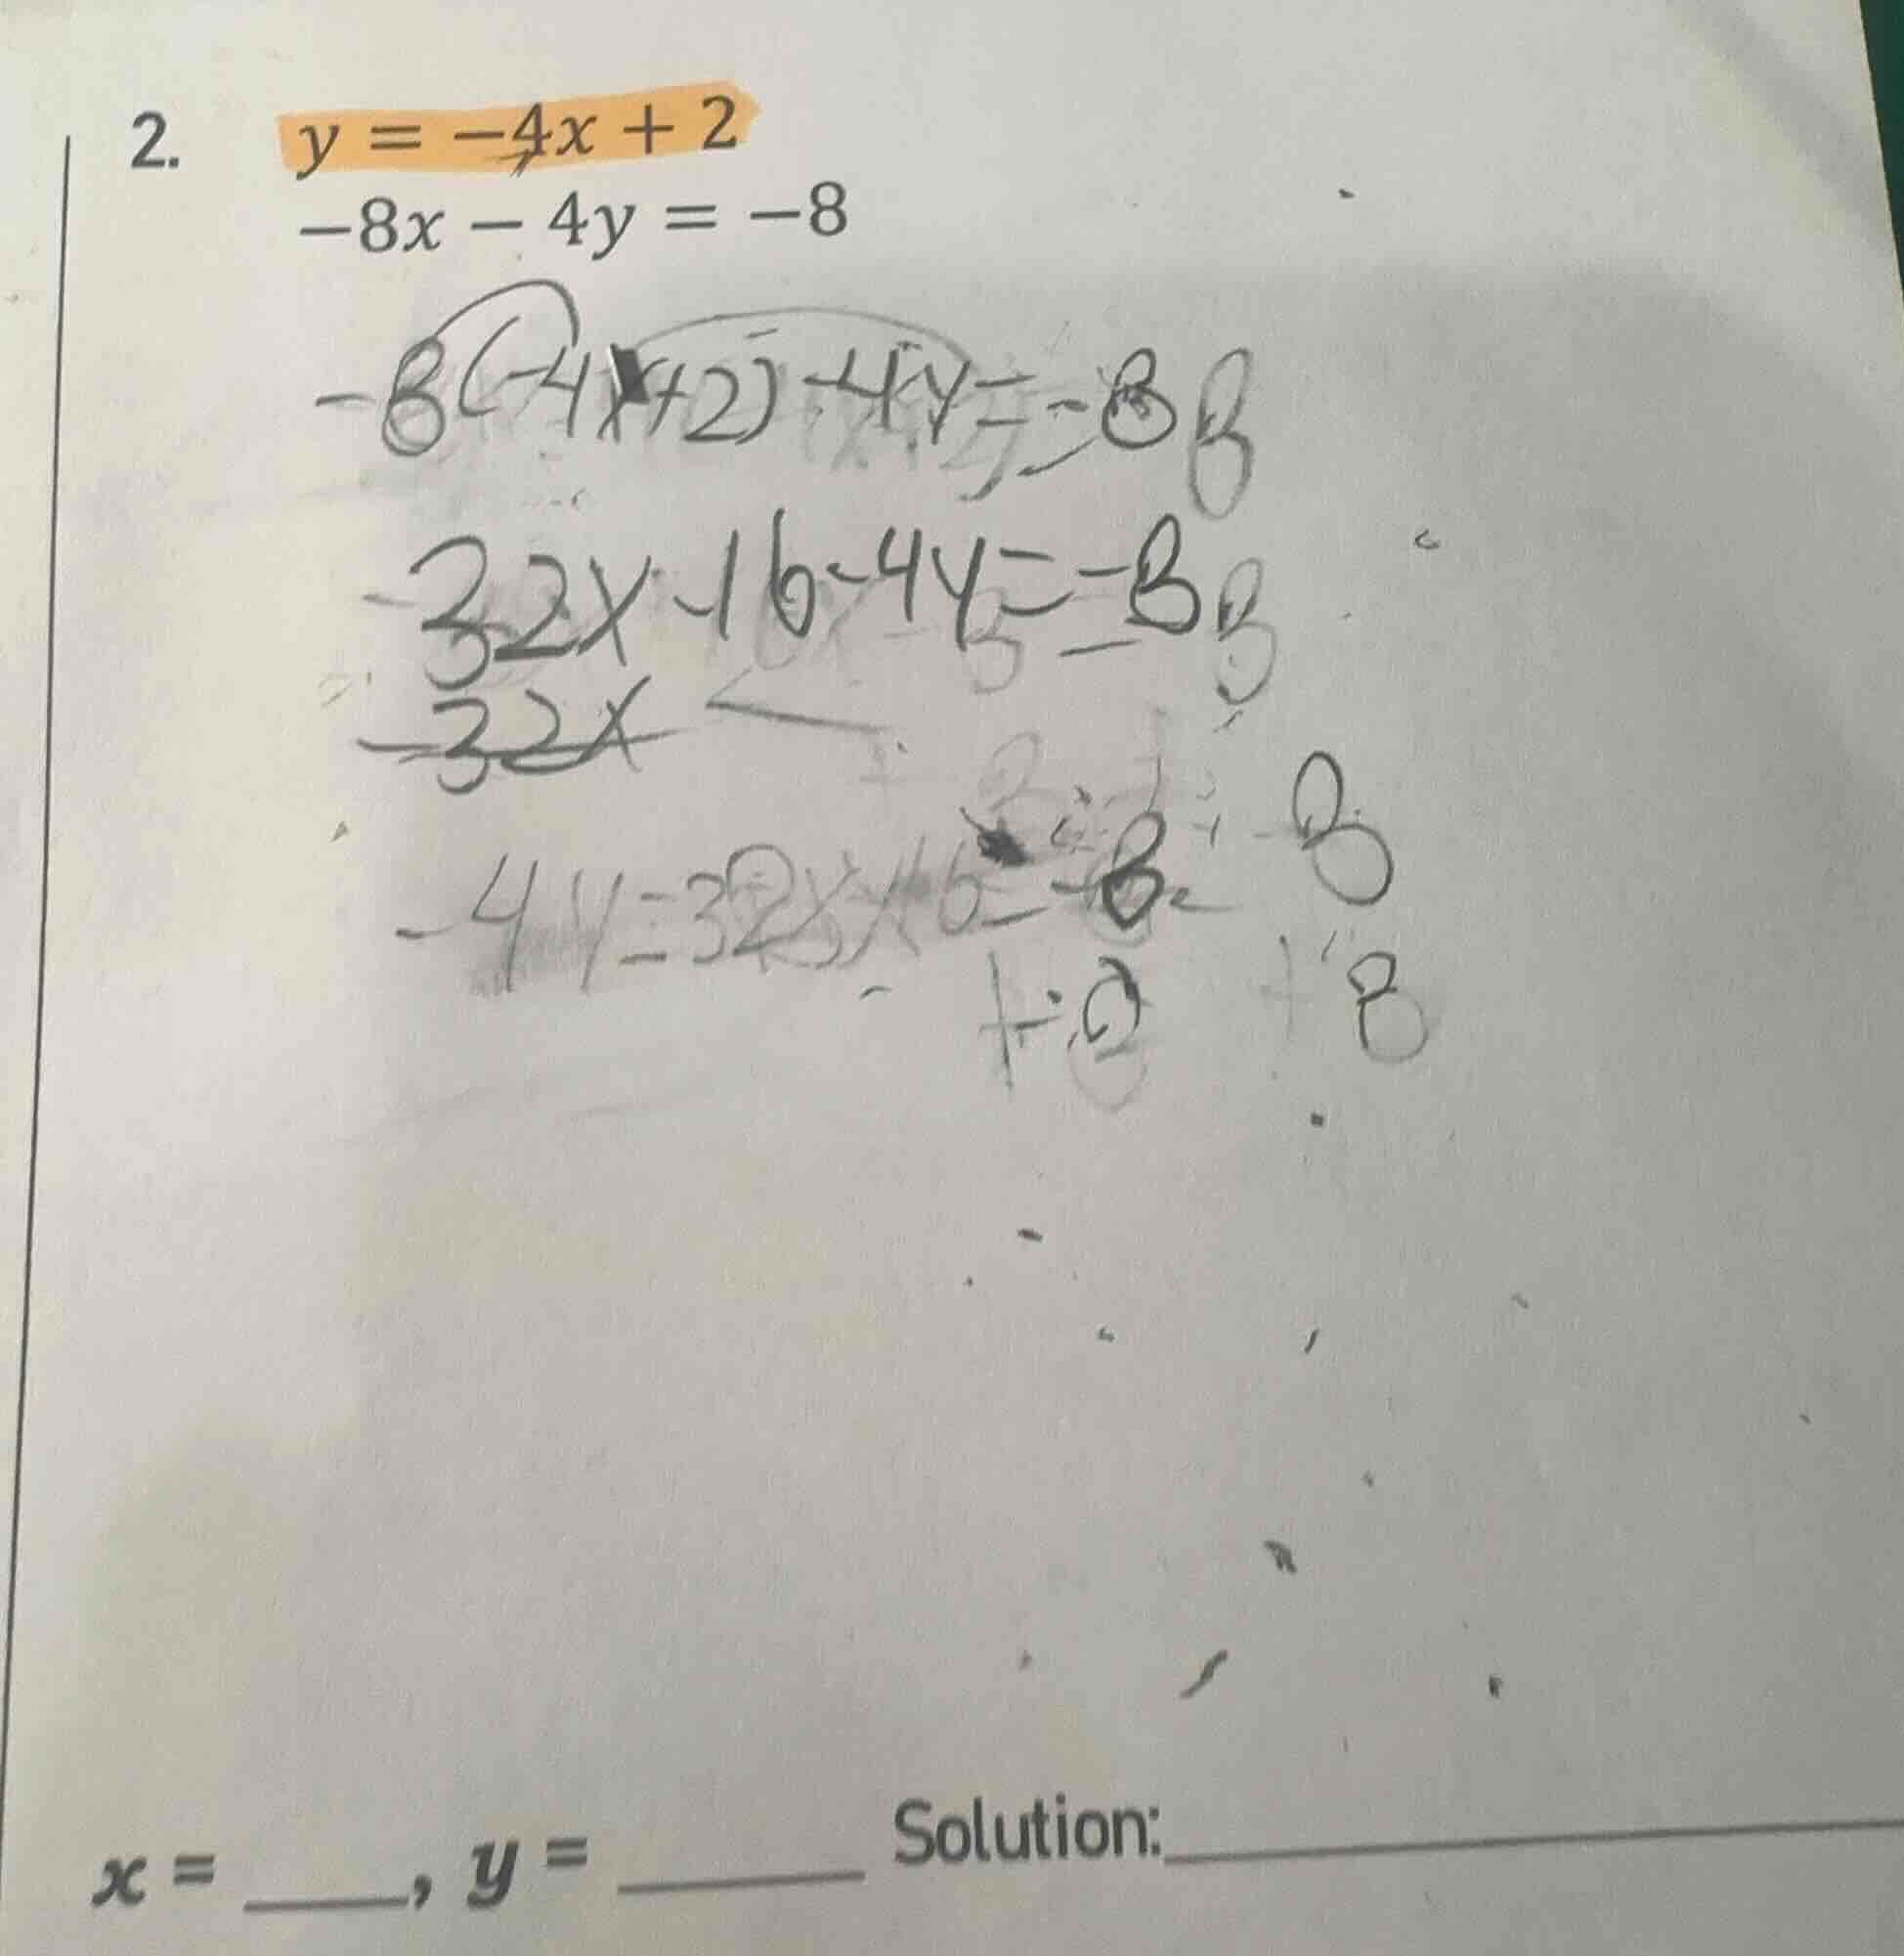 2. y = −4x + 2
−8x − 4y = −8
-8(-4x+2)-4y=-8 8
32x-16-4y=-8 8
-32x
-4y=32x 16 -8 - 8
+ 8
x = ____, y = ____ Solution:____